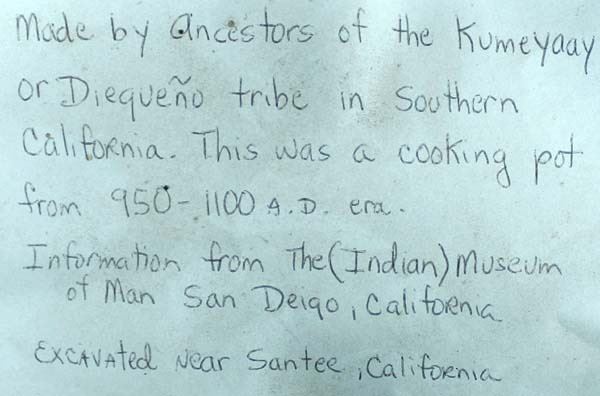 Made by Ancestors of the Kumeyaay
or Diequeño tribe in Southern
California. This was a cooking pot
from 950-1100 A.D. era.
Information from The (Indian) Museum
of Man San Deigo, California
Excavated Near Santee, California